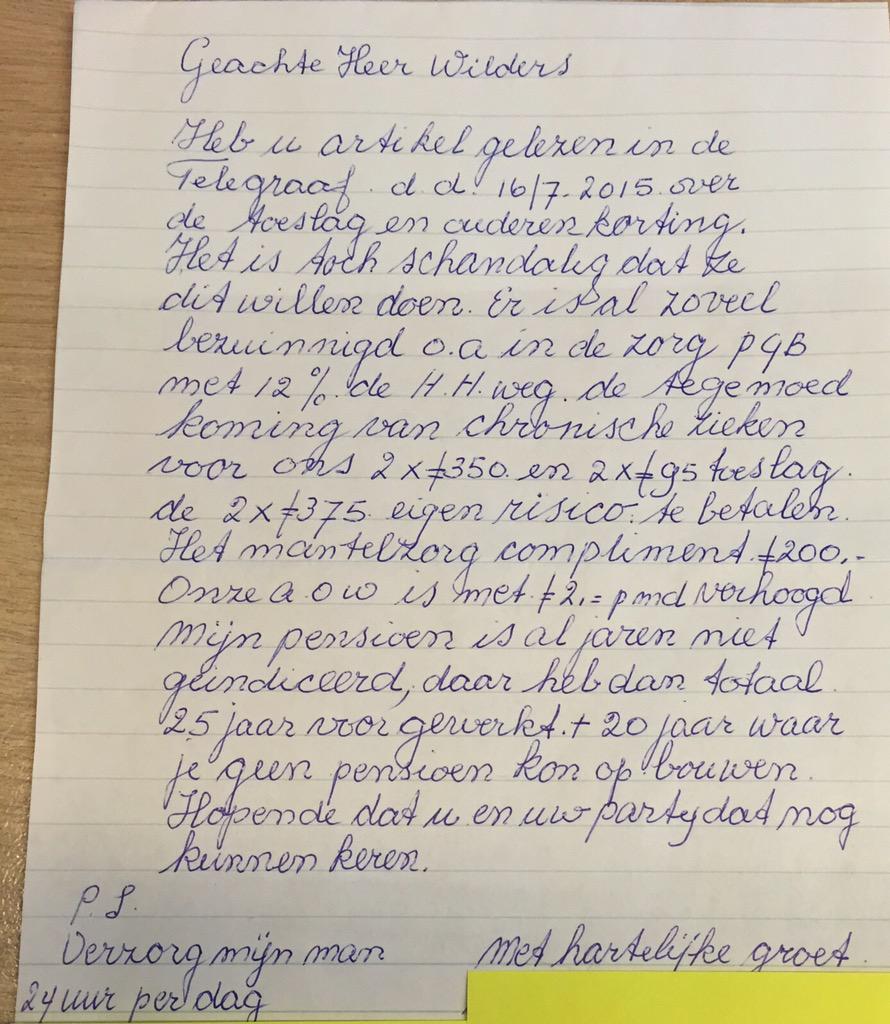 Geachte Heer Wilders
Heb u artikel gelezen in de
Telegraaf. d.d. 16/7-2015. over
de toeslag en ouderenkorting.
Het is toch schandalig dat ze
dit willen doen. Er is al zoveel
bezuinnigd o.a in de zorg PGB
met 12%. de H.H. weg. de tegemoed
koming van chronische zieken
voor ons 2 x ƒ350. en 2 x ƒ95 toeslag.
de 2 x ƒ375. eigen risico. te betalen.
Het mantelzorg compliment. ƒ200,-
Onze a.o w is met. ƒ2,= p md verhoogd
Mijn pensioen is al jaren niet
geindiceerd, daar heb dan totaal.
25 jaar voor gewerkt. + 20 jaar waar
je geen pensioen kon op bouwen.
Hopende dat u en uw party dat nog
kunnen keren.
P.S.
Verzorg mijn man
Met hartelijke groet.
24 uur per dag